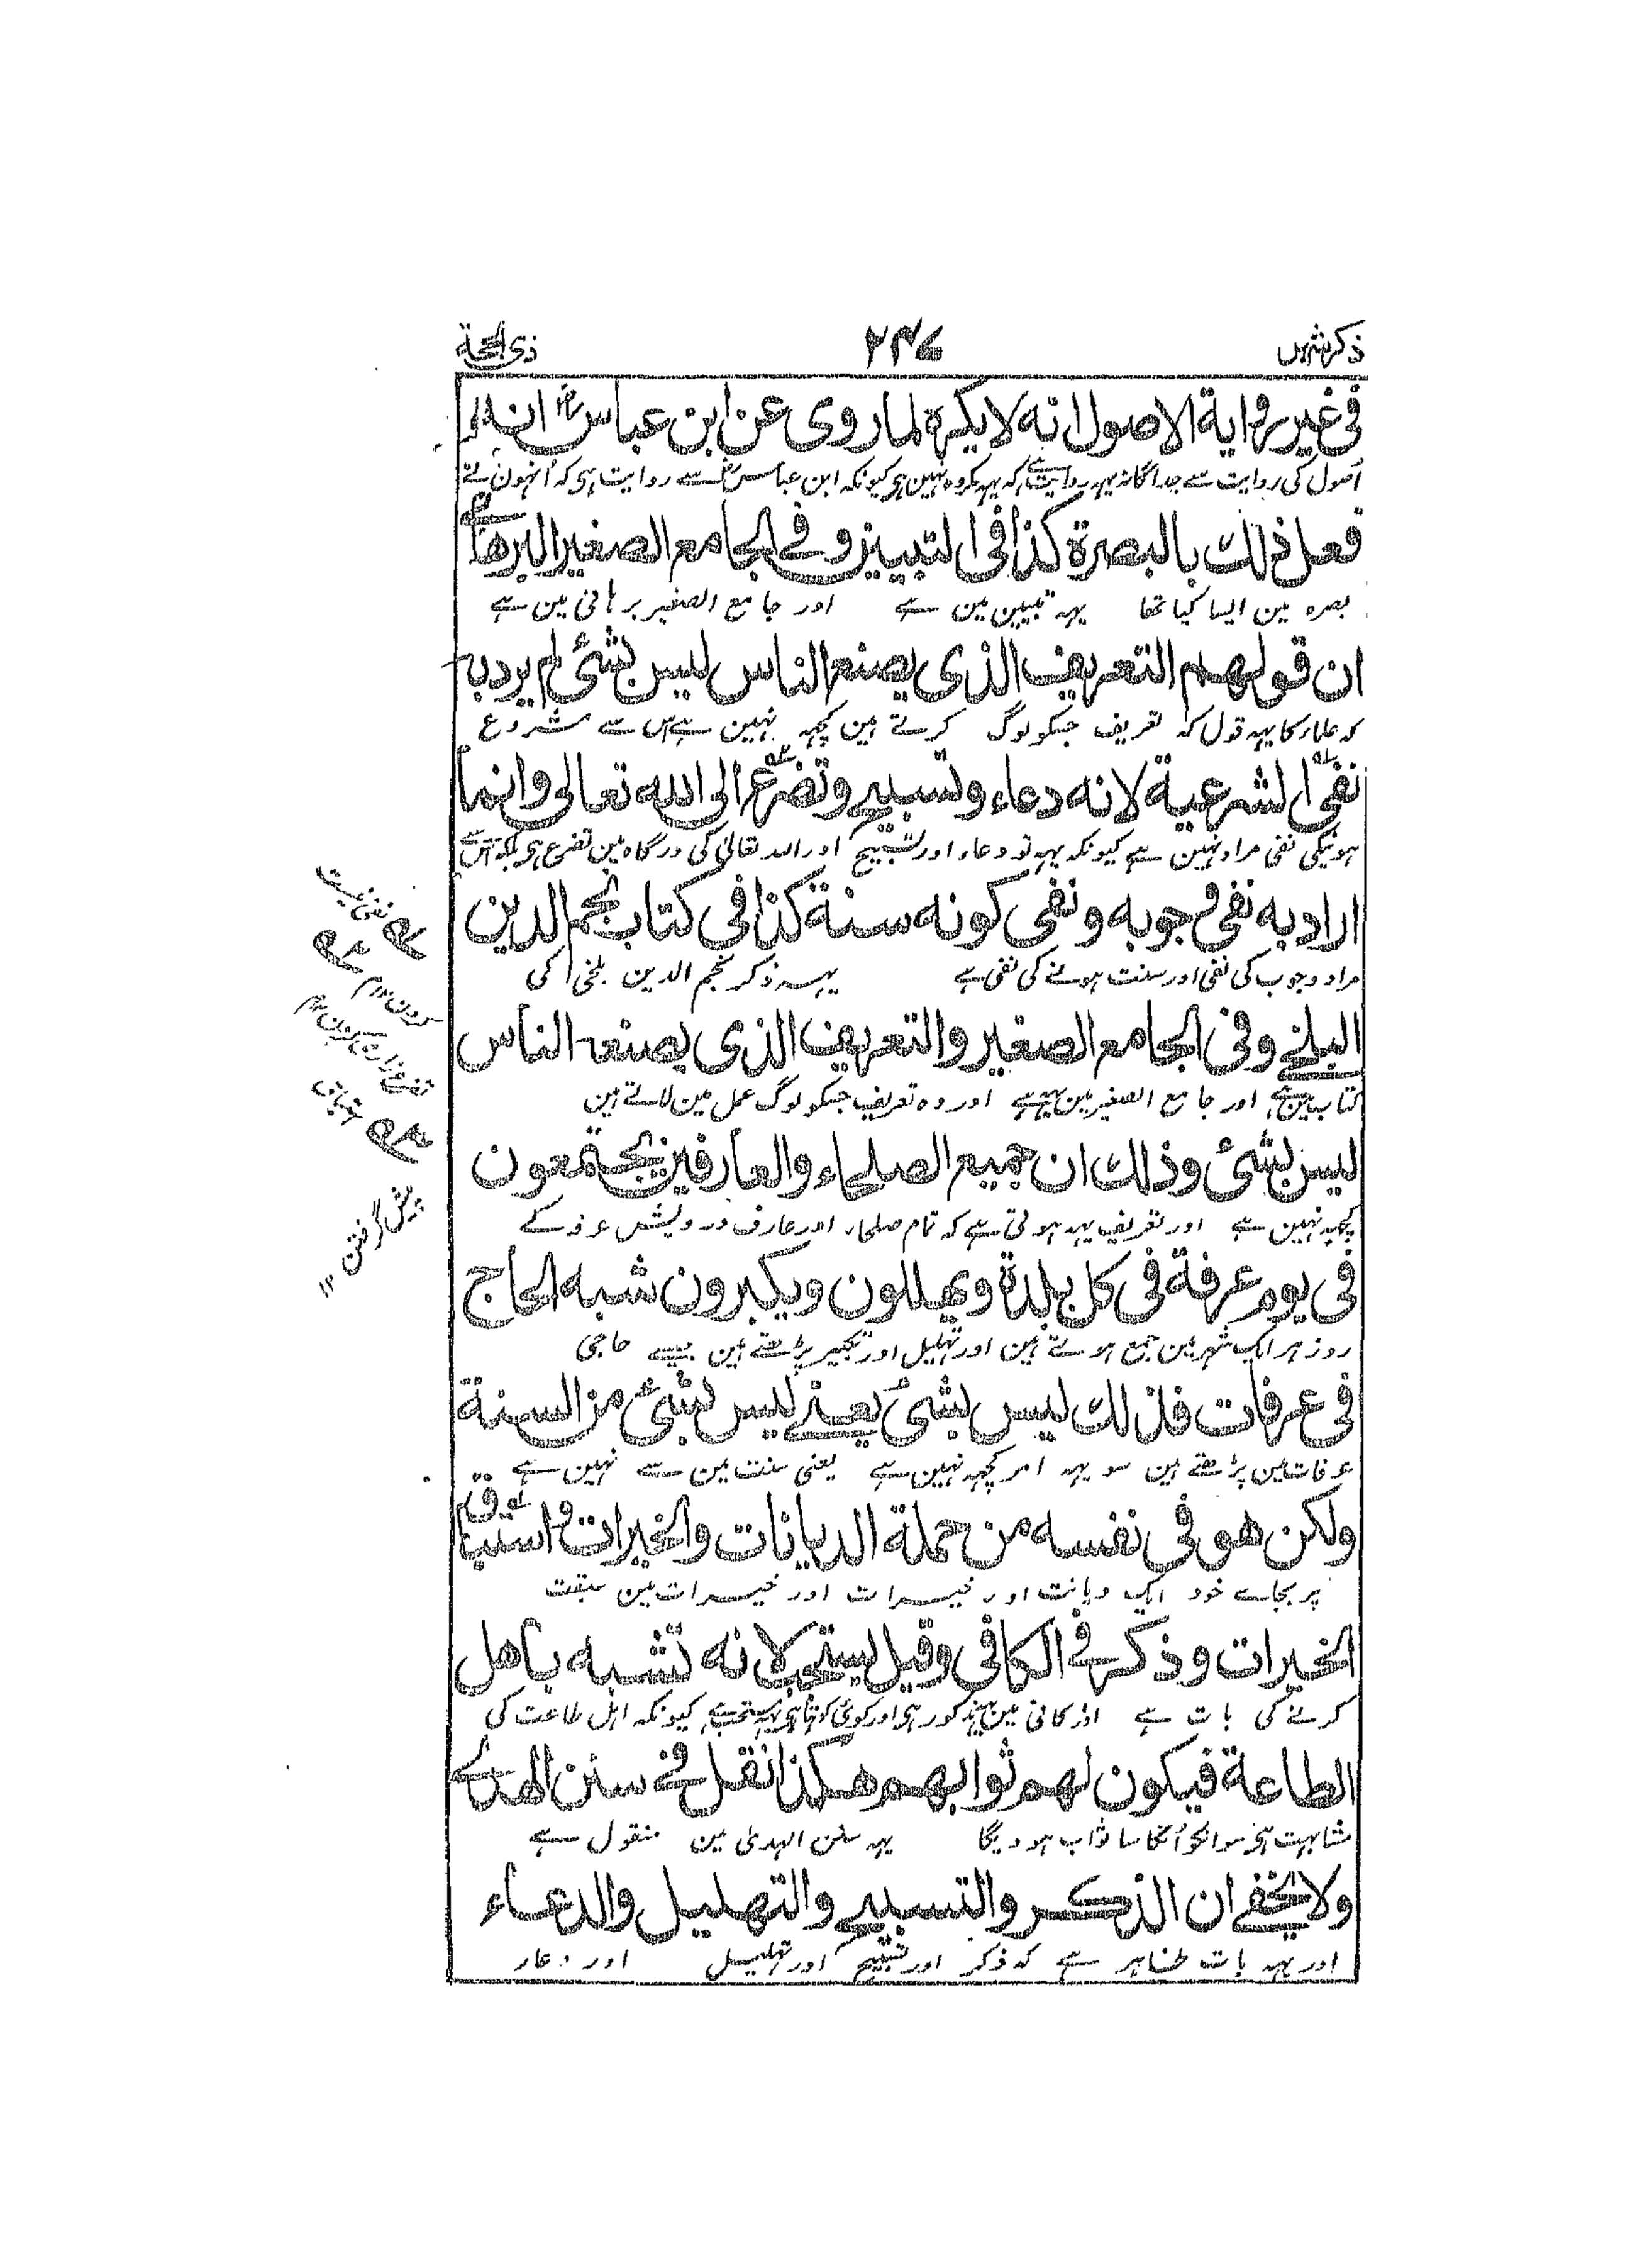 ذکر شہر ۲۴۷ ذی الحجة
فی غیر روایة الاصول انه لا یکره لما روی عن ابن عباس رض انه
اُصول کی روایت سے جداگانہ یہہ روایت ہے کہ یہہ مکروہ نہین ہی کیونکہ ابن عباس رض سے روایت ہی کہ اُنہون نے
فعل ذلك بالبصرة کذا فی التبیین وفی الجامع الصغیر البرهانی
بصرہ مین ایسا کیا تھا یہہ تبیین مین ہے اور جامع الصغیر برہانی مین ہے
ان قولهم التعریف الذی یصنعه الناس لیس بشئ لم یرد به
کہ علماء کا یہہ قول کہ تعریف جسکو لوگ کرتے ہین کچہہ نہین ہے اس سے مشروع
نفی الشرعیة لانه دعاء وتسبیح وتضرع الی الله تعالی وانما
ہونیکی نفی مراد نہین ہے کیونکہ یہہ تو دعاء اور تسبیح اور اللہ تعالیٰ کی درگاہ مین تضرع ہی بلکہ اس سے
اراد به نفی وجوبه ونفی کونه سنة کذا فی کتاب نجم الدین
مراد وجوب کی نفی اور سنت ہونے کی نفی ہے یہہ ذکر نجم الدین بلخی کی
البلخی وفی الجامع الصغیر والتعریف الذی یصنعه الناس
کتاب مین ہے اور جامع الصغیر مین یہہ ہے اور وہ تعریف جسکو لوگ عمل مین لاتے ہین
لیس بشئ وذلك ان جمیع الصلحاء والعارفین یجتمعون
کچہہ نہین ہے اور تعریف یہہ ہوتی ہے کہ تمام صلحاء اور عارف درویش عرفہ کے
فی یوم عرفة فی کل بلدة ویهللون ویکبرون شبه الحاج
روز ہر ایک شہر مین جمع ہوتے ہین اور تہلیل اور تکبیر پڑھتے ہین جیسے حاجی
فی عرفات فذلك لیس بشئ یعنی لیس بشئ من السنة
عرفات مین پڑھتے ہین سو یہہ امر کچہہ نہین ہے یعنی سنت مین سے نہین ہے
ولکن هو فی نفسه من جملة الدیانات والخیرات واستباق
پر بجاے خود ایک دیانت اور خیرات اور خیرات مین سبقت
الخیرات وذکر فی الکافی وقیل یستحب لانه تشبه باهل
کرنے کی بات ہے اور کافی مین مذکور ہی اور کوئی کہتا ہی یہہ مستحب ہے کیونکہ اہل طاعت کی
الطاعة فیکون لهم ثوابهم هکذا نقل فی سنن الهدی
مشابہت ہی سو انکو اُنکا سا ثواب ہودیگا یہہ سنن الہدیٰ مین منقول ہے
ولا یخفی ان الذکر والتسبیح والتهلیل والدعاء
اور یہہ بات ظاہر ہے کہ ذکر اور تسبیح اور تہلیل اور دعاء
نفی نیست
کردن
پیش گرفتن ۱۲